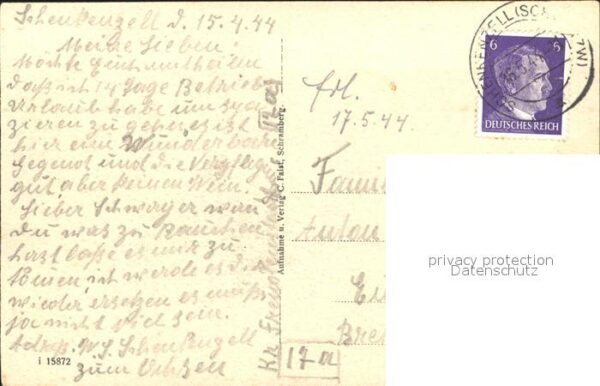 Schenkenzell d. 15.4.44
Meine Lieben!
Möchte Euch mitteilen
daß ich 14 Tage Betriebs
Urlaub habe um spa
zieren zu gehen es ist
hier eine Wunderbare
Gegend und die Verpfleg
gut aber keinen Wein.
Lieber Schwager wan
du was zu Rauchen
hast laße es mir zu
komen ich werde es dir
wieder ersetzen es muß
ja nicht viel sein.
Adres. W. S. Schenkenzell
zum Ochsen
i 15872
Aufnahme u. Verlag C. Faist, Schramberg.
17a
Kr.
erl.
17.5.44
Famil
Anton
Bret
17a
6
6
DEUTSCHES REICH
SCHENKENZELL (SCHWARZW)
privacy protection
Datenschutz